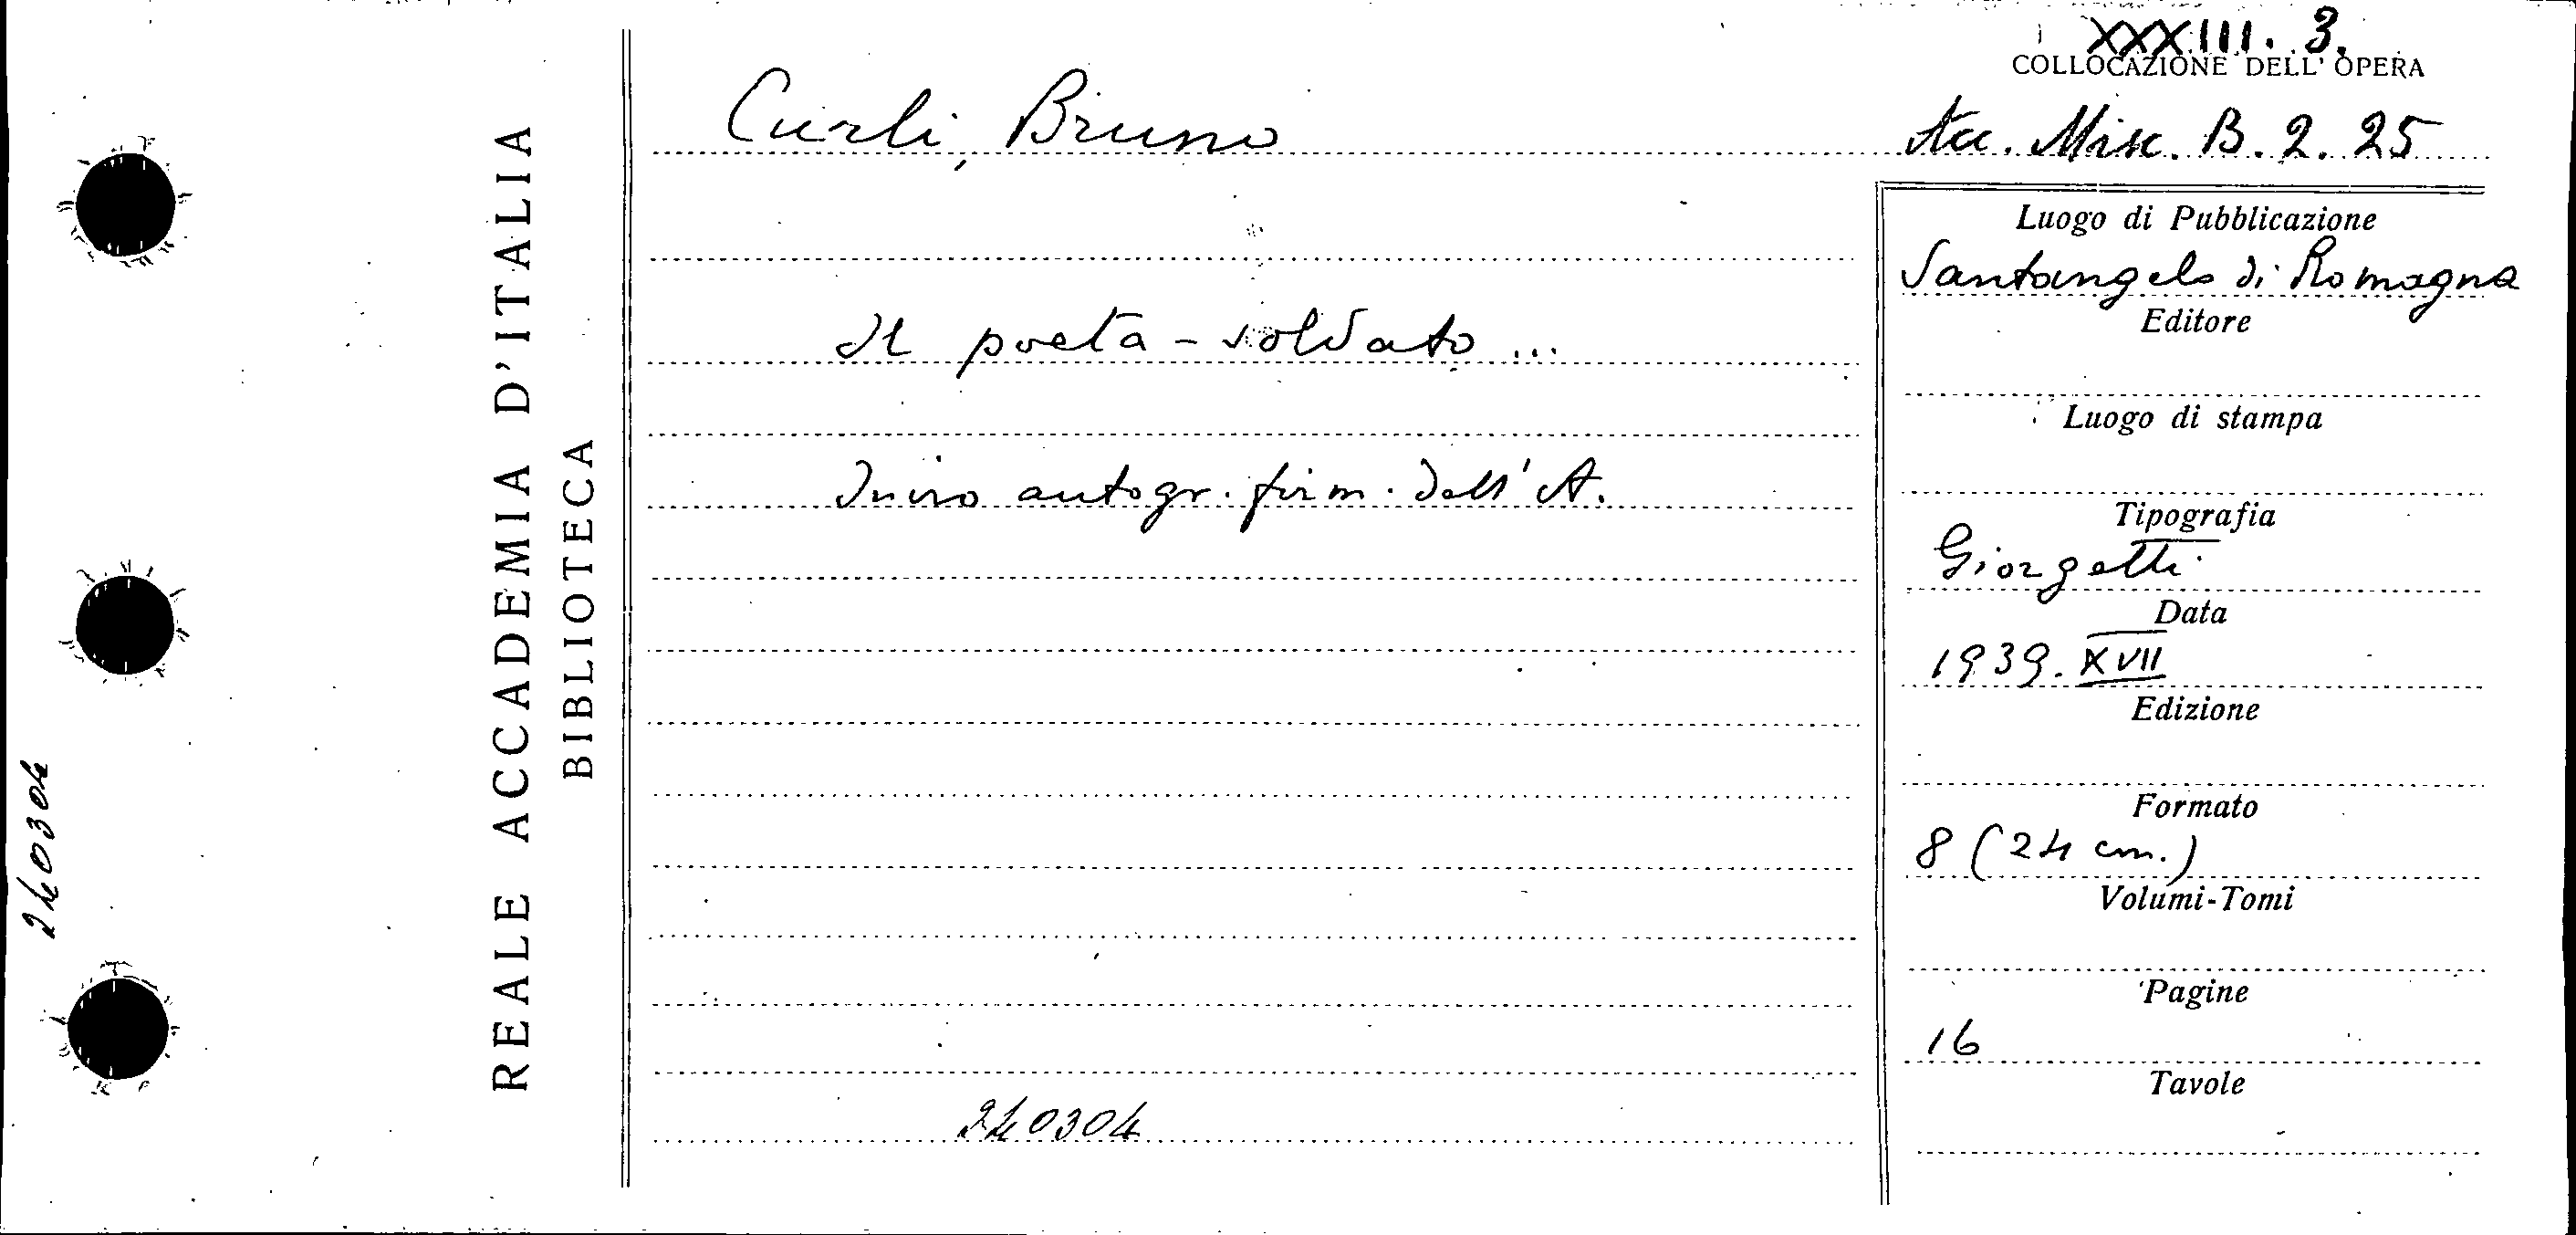 XXXIII. 3.
COLLOCAZIONE DELL' OPERA
Curli, Bruno
Acc. Misc. B. 2. 25
REALE ACCADEMIA D'ITALIA
BIBLIOTECA
240304
Il poeta - soldato ...
Invio autogr. firm. dell' A.
240304
Luogo di Pubblicazione
Santangelo di Romagna
Editore
Luogo di stampa
Tipografia
Giorgetti
Data
1939. XVII
Edizione
Formato
8 (24 cm.)
Volumi-Tomi
Pagine
16
Tavole